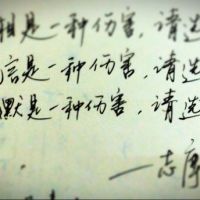 相是一种伤害,请选
言是一种伤害,请选
默是一种伤害,请选
——志序